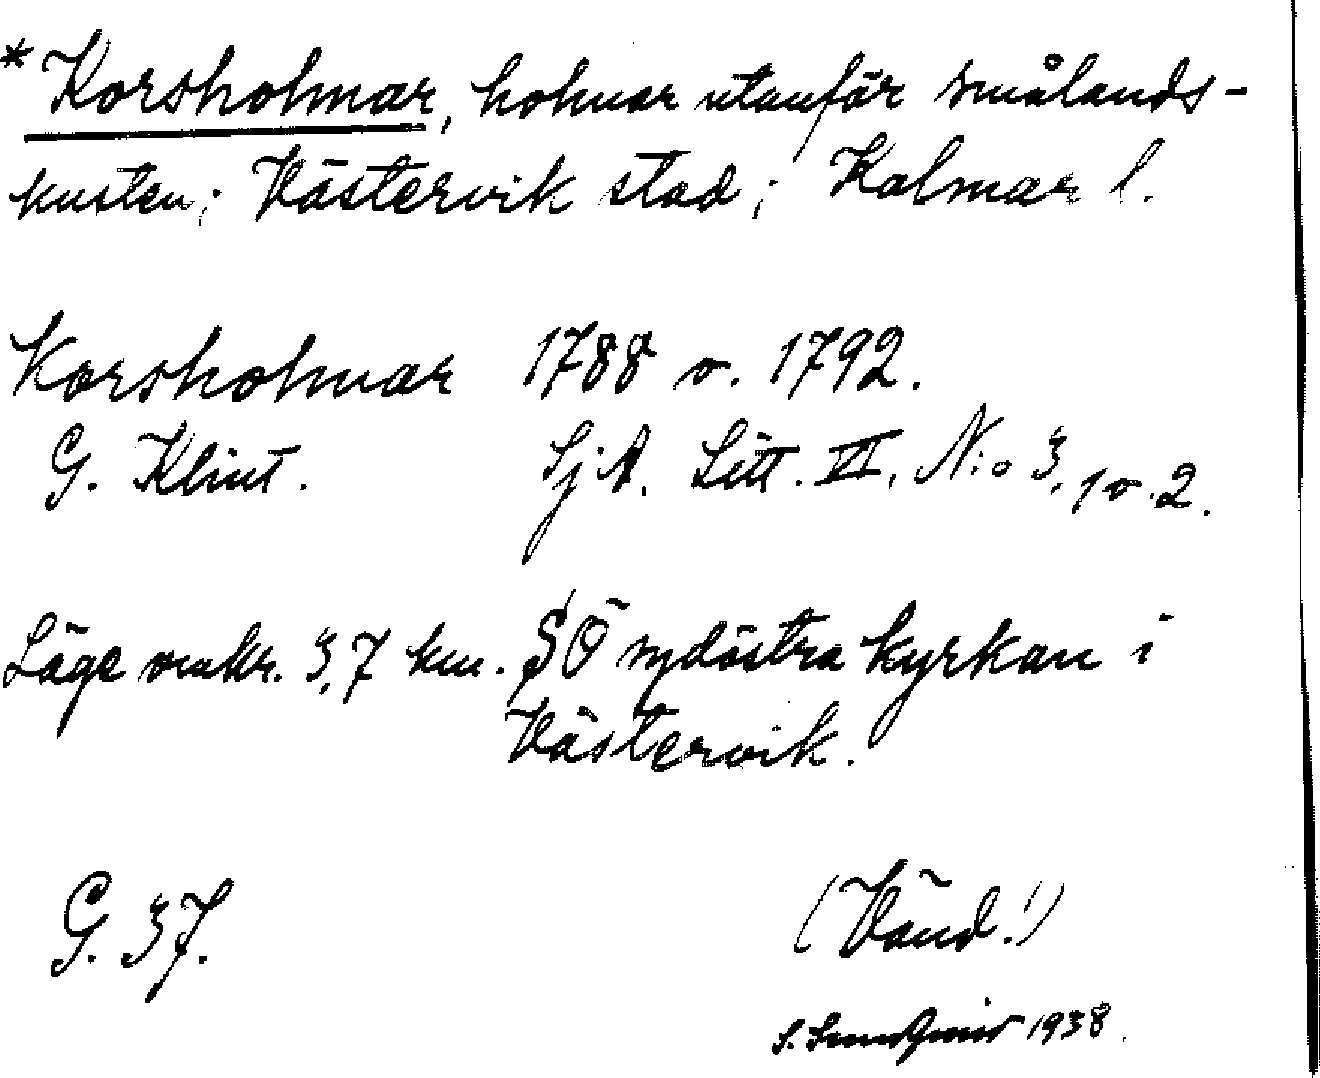 * Korsholmar, holmar utanför smålands-
kusten; Västervik stad; Kalmar l.
Korsholmar 1788 o. 1792.
G. Klint. Sj. A. Litt. VI, N:o 3, 1 o. 2.
Läge omkr. 3,7 km. SÖ sydöstra kyrkan i
Västervik.
G. 37. (Vänd!)
S. Sundqvist 1938.